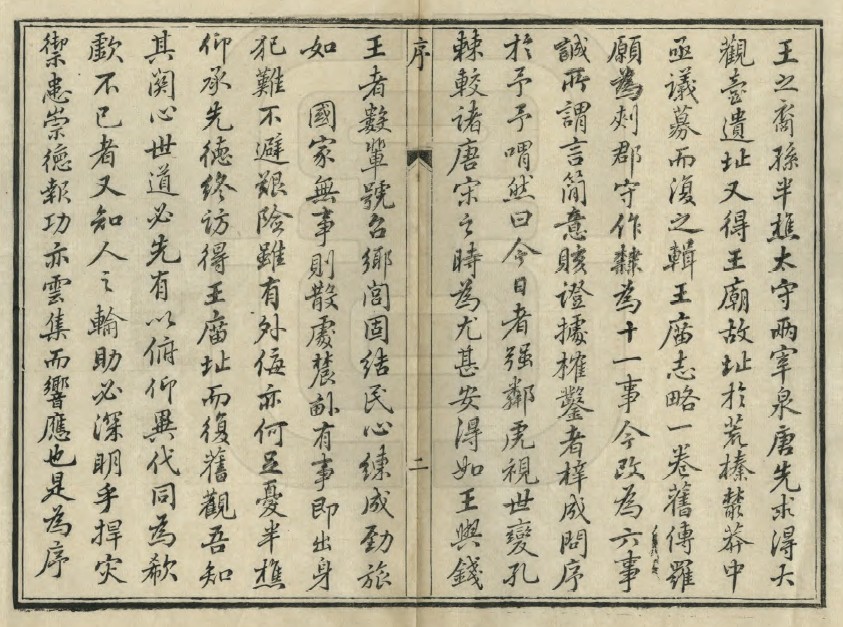 王之裔孫半樵太守兩宰泉唐先求得大
觀臺遺址又得王廟故址於荒榛叢莽中
亟議募而復之輯王廣志略一卷舊傳羅
願為剡郡守作隸為十一事今改為六事
誠所謂言簡意賅證據榷鑿者梓成問序
於予予喟然曰今日者强鄰虎視世變孔
棘較諸唐宋之時為尤甚安得如王與錢
序
二
王者數輩號召鄉閭固結民心練成勁旅
如 國家無事則散處農畝有事即出身
犯難不避艱險雖有外侮亦何足憂半樵
仰承先德終訪得王廣址而復舊觀吾知
其關心世道必先有以俯仰異代同為欷
歔不已者又知人之輪助必深明乎捍灾
禦患崇德報功亦雲集而響應也是為序